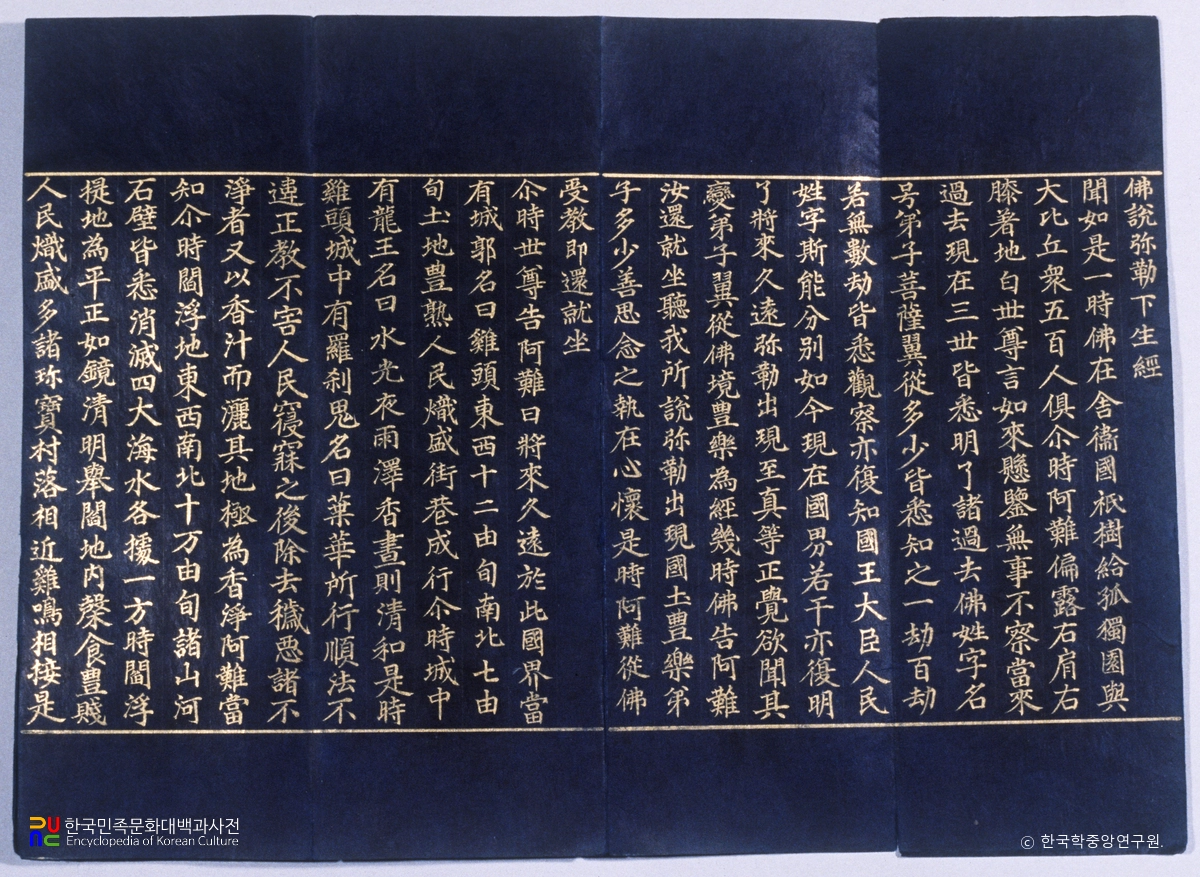 佛說弥勒下生經
聞如是一時佛在舍衞國祇樹給孤獨園與
大比丘衆五百人俱尒時阿難偏露右肩右
膝著地白世尊言如來懸鑒無事不察當來
過去現在三世皆悉明了諸過去佛姓字名
号弟子菩薩翼從多少皆悉知之一劫百劫
若無數劫皆悉觀察亦復知國王大臣人民
姓字斯能分别如今現在國界若干亦復明
了將來久遠弥勒出現至真等正覺欲聞其
變弟子翼從佛境豊樂為經幾時佛告阿難
汝還就坐聽我所說弥勒出現國土豊樂弟
子多少善思念之執在心懷是時阿難從佛
受教即還就坐
尒時世尊告阿難曰將來久遠於此國界當
有城郭名曰雞頭東西十二由旬南北七由
旬土地豊熟人民熾盛街巷成行尒時城中
有龍王名曰水光夜雨澤香晝則清和是時
雞頭城中有羅刹鬼名曰葉華所行順法不
違正教不害人民寢寐之後除去穢惡諸不
淨者又以香汁而灑其地極為香淨阿難當
知尒時閻浮地東西南北十万由旬諸山河
石壁皆悉消滅四大海水各據一方時閻浮
提地為平正如鏡清明舉閻地内穀食豊賤
人民熾盛多諸珎寶村落相近雞鳴相接是
한국민족문화대백과사전
Encyclopedia of Korean Culture
ⓒ 한국학중앙연구원.